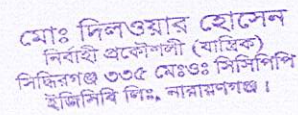 মোঃ দিলওয়ার হোসেন
নির্বাহী প্রকৌশলী (যান্ত্রিক)
সিদ্ধিরগঞ্জ ৩৩৫ মেঃওঃ সিসিপিপি
ইজিসিবি লিঃ, নারায়ণগঞ্জ।